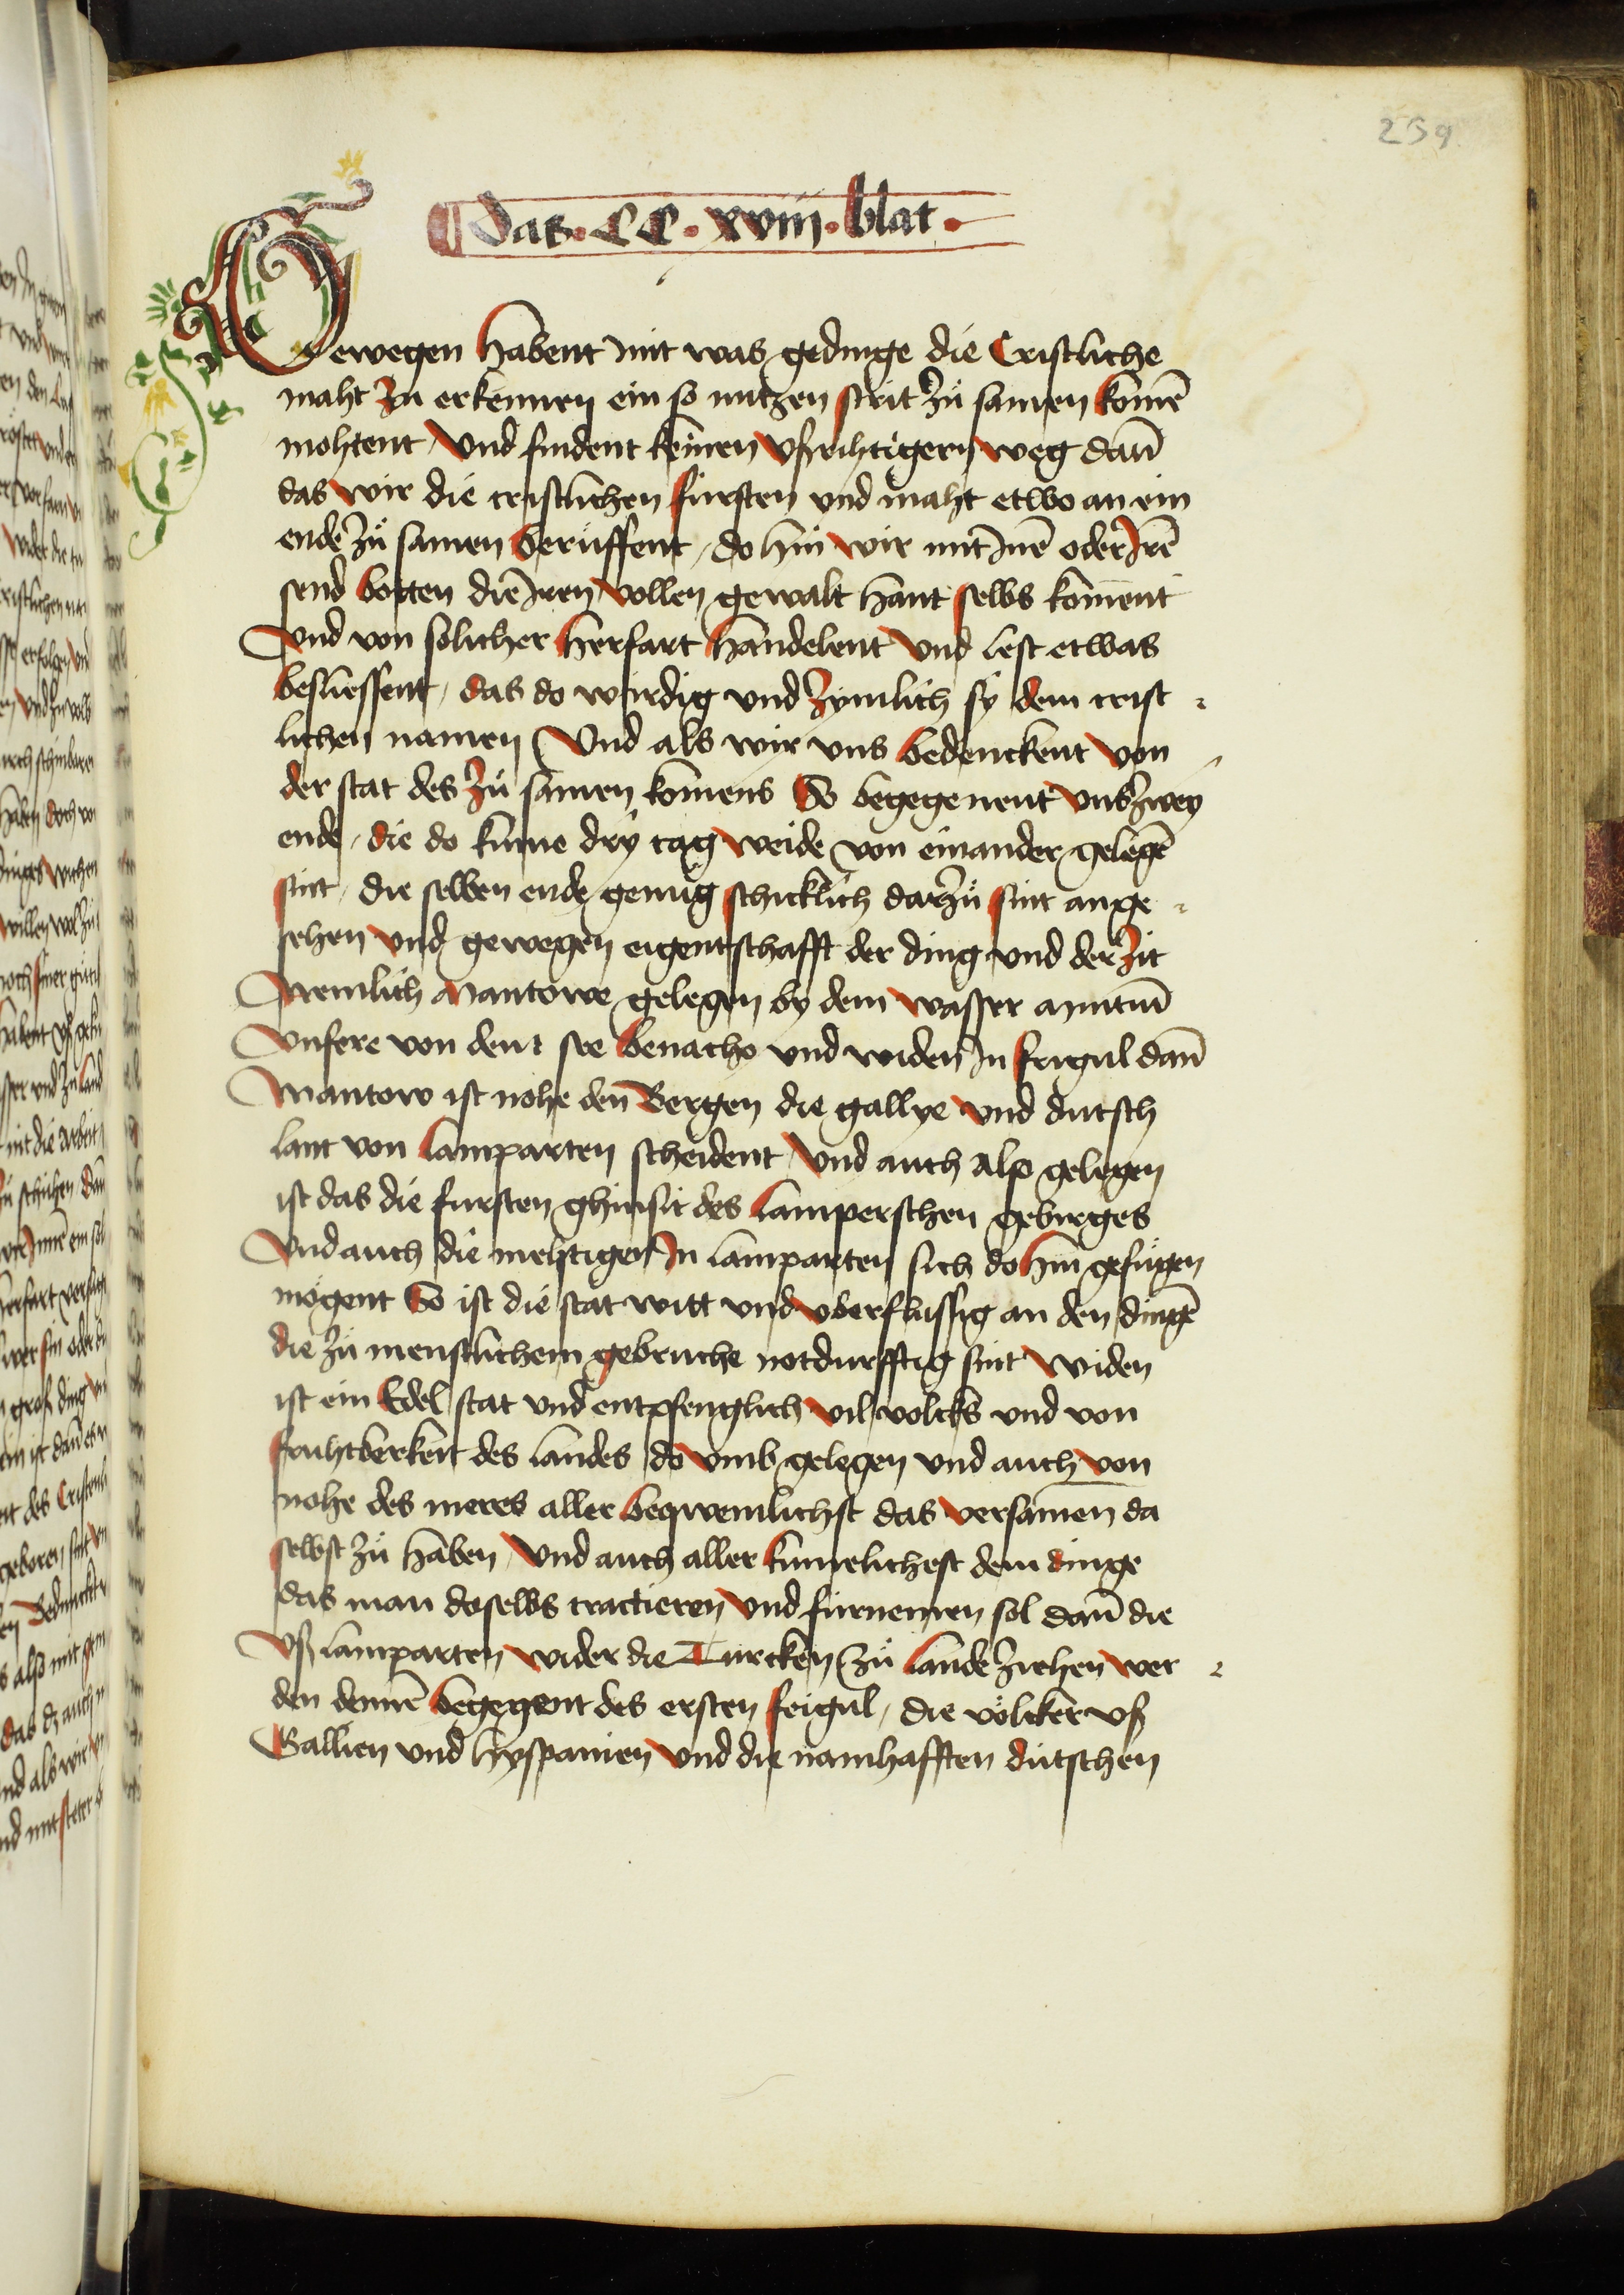 239
Das . CC . xviij . blat .
Gewegen habent mit was gedinge die Cristliche
maht zu erkennen ein so nutzen strit zuͦ samen komē
mohtent / Vnd findent keinen vfrihtigern weg dañ
das wir die cristlichen fursten vnd maht etwo an ein
ende zuͦ samen beruͦffent / do hin wir mit Inē oder Irē
send botten die Iren vollen gewalt hant selbs koment
Vnd von solicher herfart handelent Vnd lest etwas
besliessent / das do wirdig vnd zymlich sy dem crist
lichen namen Vnd als wir vns bedenckent von
der stat des zuͦ samen komens So begegenent vns zwey
ende / die do kume dry tag weide von einander gelegē
sint / die selben ende genuͦg schicklich darzuͦ sint ange
sehen vnd gewegen eigentschafft der ding vnd der zit
Nemlich Mantowe gelegen by dem wasser amitiū
Vnsere von dem see Benacho vnd widen In frigul dañ
Mantow ist nohe den Bergen die gallye vnd dutsch
lant von lamparten scheident / Vnd auch also gelegen
ist das die fursten ghinsit des lamperschen gebirges
Vnd auch die mehtigen In lamparten sich do hin gefuͤgen
moͤgent So ist die stat witt vnd vberflussig an den dingē
die zuͦ menschlichem gebruche notdurfftig sint Widen
ist ein Edel stat vnd entpfenglich vil volcks vnd von
fruhtberkeit des landes do vmb gelegen vnd auch von
nohe des meres aller beqwemlichst das versamen da
selbst zuͦ haben / Vnd auch aller kumelichest dem dinge
das man doselbs tractieren vnd furnemen sol dañ die
Vß lamparten wider die Turcken zuͦ lande ziehen wer
den den̄ē begegent des ersten frigul / die voͤlcker vß
Gallien vnd hyspanien vnd die namhafften dutschen